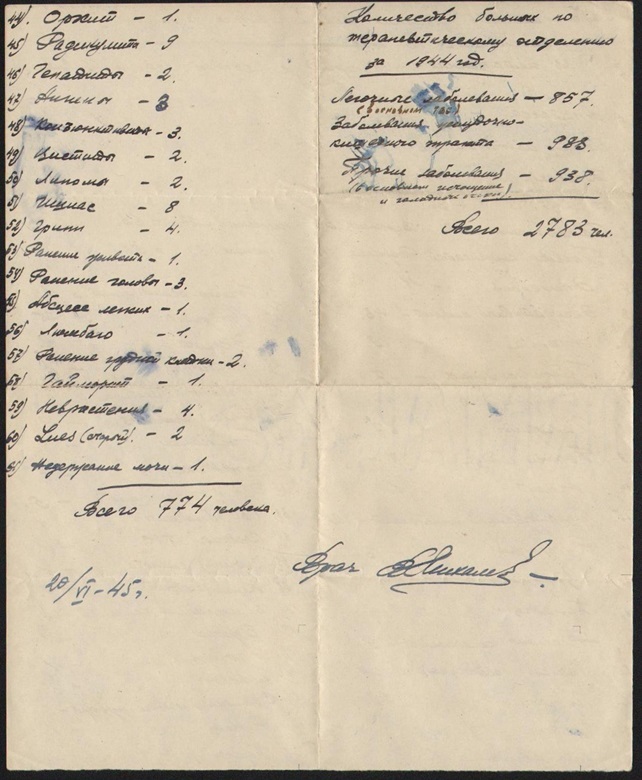 44) Орхит - 1.
45) Радикулита - 9
46) Гепатиты - 2.
47) Ангины - 3
48) Конъюнктивит - 3.
49) Циститы - 2.
50) Липомы - 2.
51) Ишиас - 8
52) Грипп - 4.
53) Ранения - 1.
54) Ранение головы - 3.
55) Абсцесс легких - 1.
56) Люмбаго - 1.
57) Ранение грудной клетки - 2.
58) Гайморит - 1.
59) Неврастения - 4.
60) Lues (старый). - 2
61) Недержание мочи - 1.
Всего 774 человека.
20/VI - 45 г.
Количество больных по
терапевтическому отделению
за 1944 год.
Легочные заболевания - 857.
(в основном ТБС)
Заболевания желудочно-
кишечного тракта - 988.
Прочие заболевания - 938.
(в основном истощение
и голодные отеки)
Всего 2783 чел.
Врач